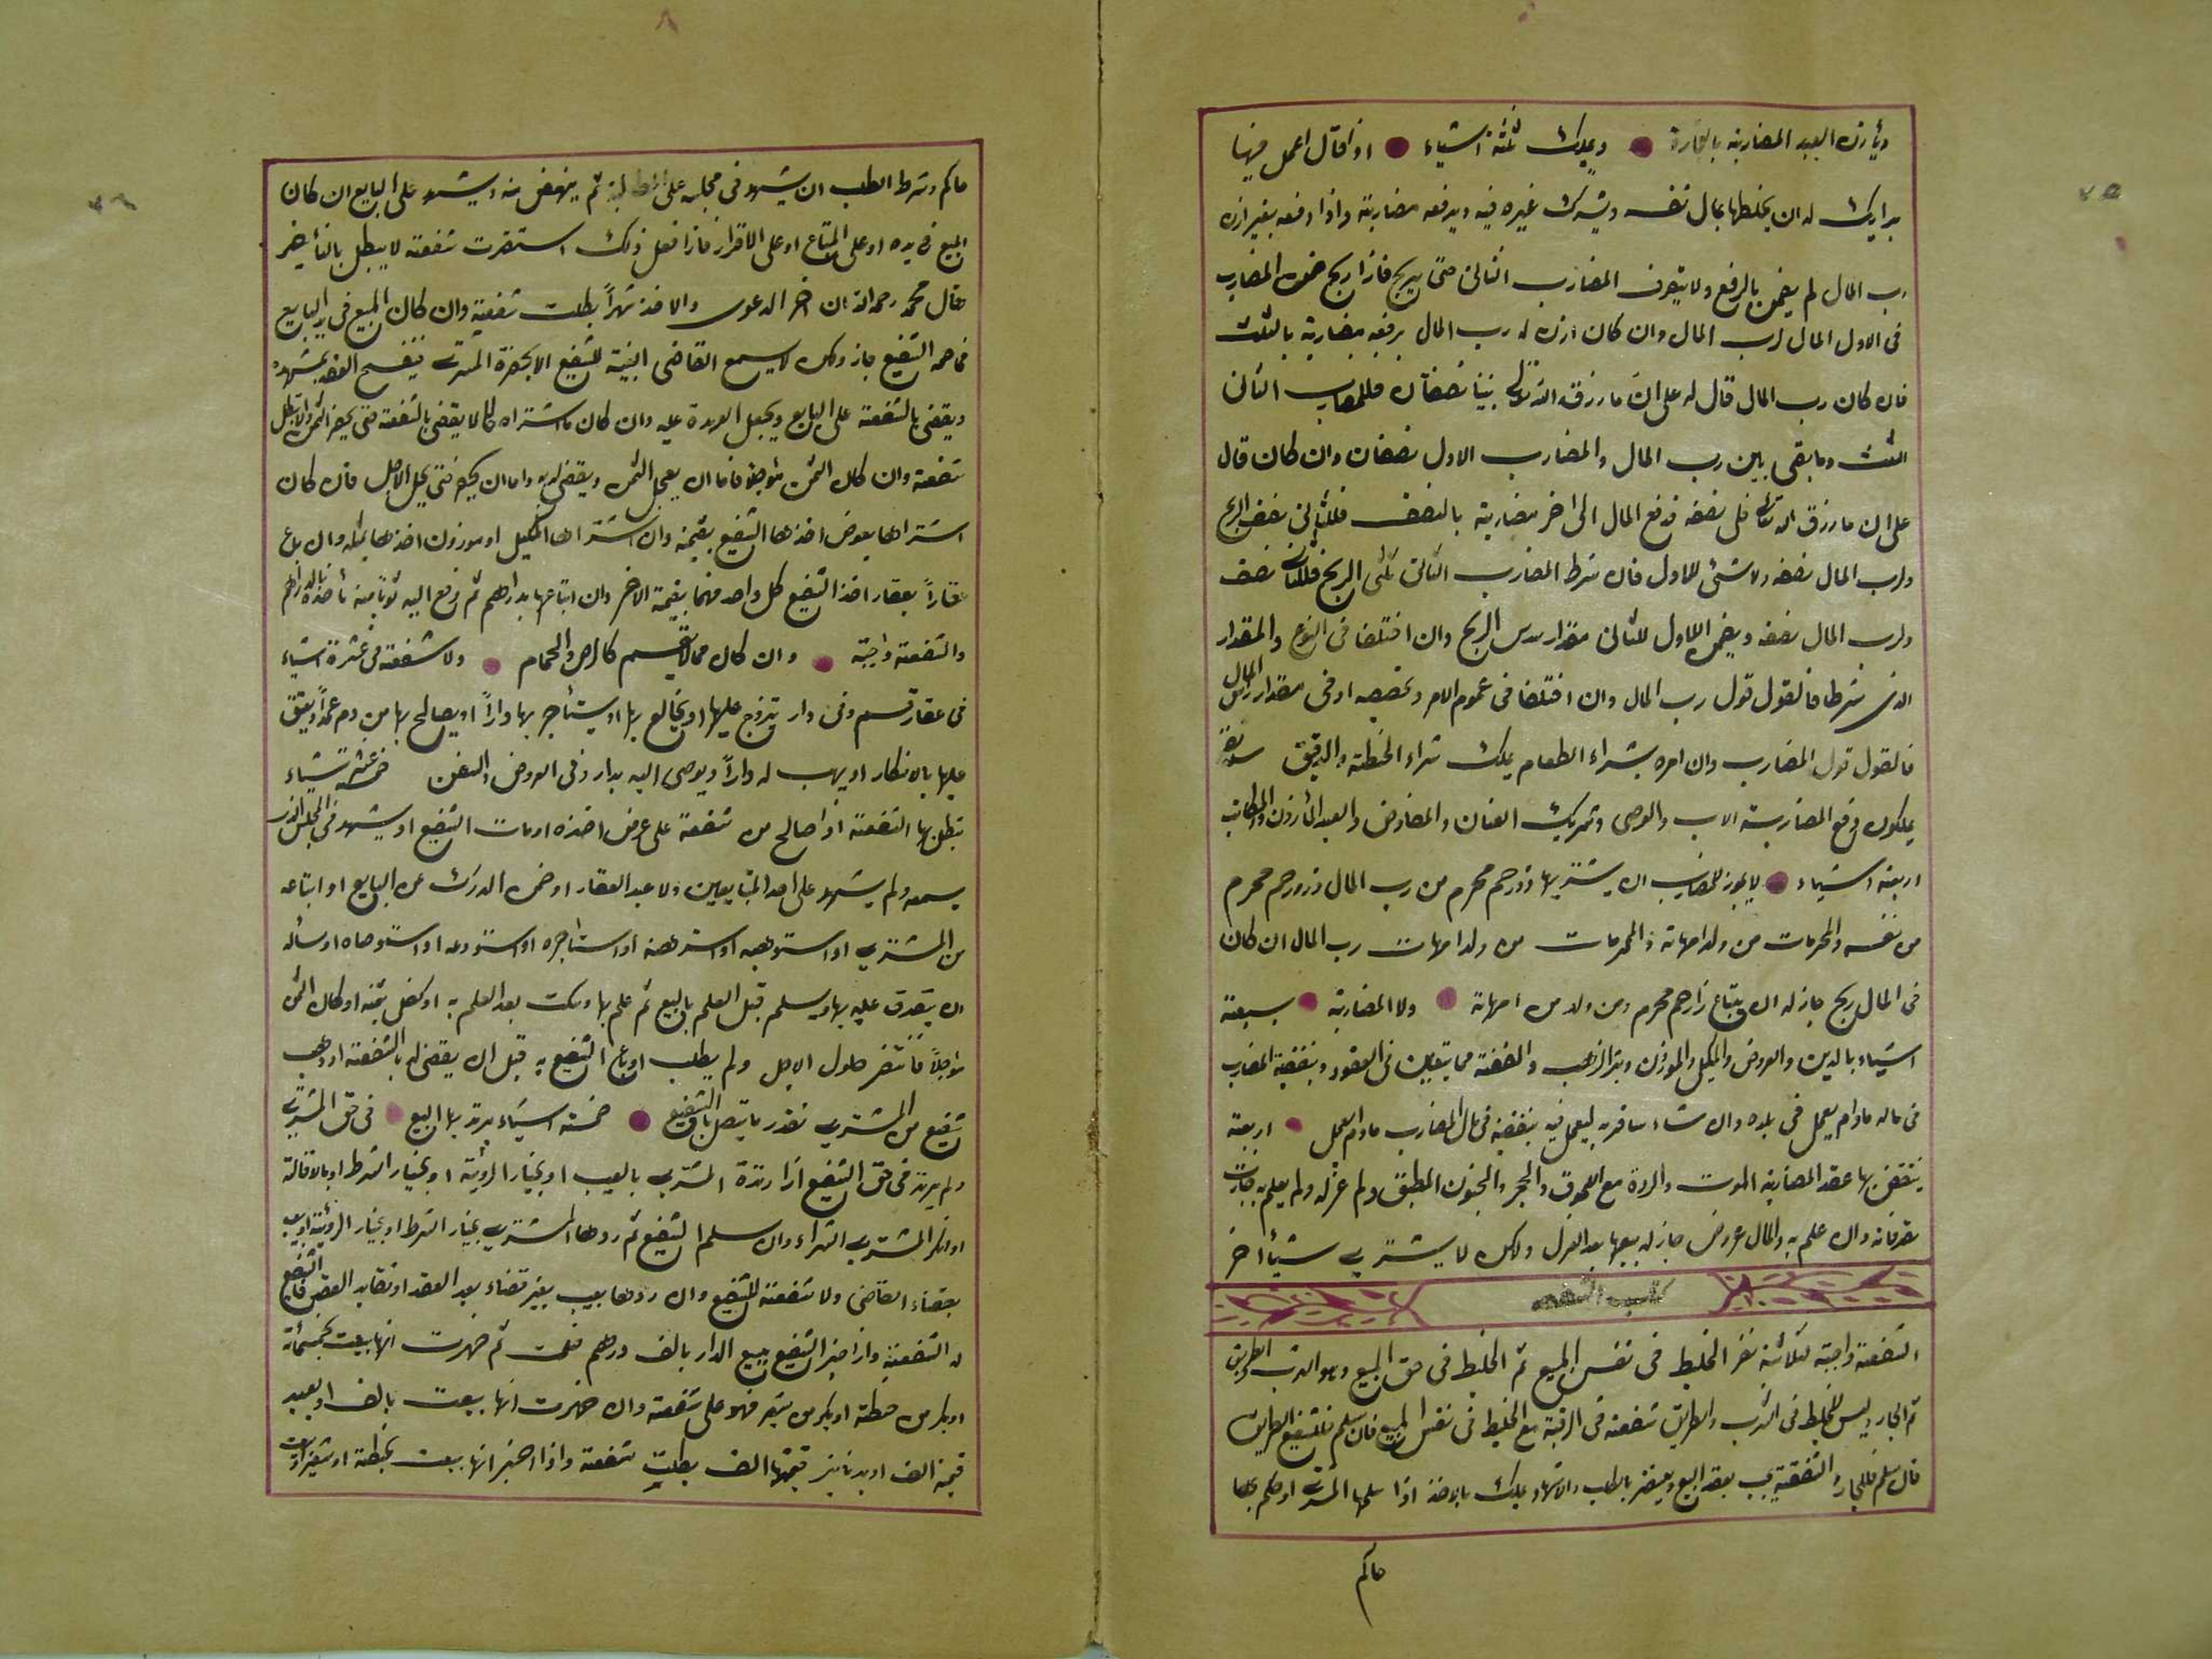 ويأذن العبد المضاربة بالتجارة ● ويملك ثلثة اشياء ● اذا قال اعمل فيها
برايك له ان يخلطها بمال نفسه ويشرك غيره فيه ويدفعه مضاربة واذا دفعه بغير اذن
رب المال لم يضمن بالدفع ولا بتصرف المضارب الثانى حتى يربح فاذا ربح ضمن المضارب
فى الاول المال لرب المال وان كان اذن له رب المال بدفعه مضاربة بالثلث
فان كان رب المال قال له على ان ما رزق الله تعالى بيننا نصفان فللمضارب الثانى
الثلث وما بقى بين رب المال والمضارب الاول نصفان وان كان قال
على ان ما رزق الله تعالى فلى نصفه فدفع المال الى اخر مضاربة بالنصف فللثانى نصف الربح
ولرب المال نصفه ولا شئ للاول فان شرط المضارب الثالث ثلثى الربح فللثانى نصف
ولرب المال نصفه ويضمن الاول للثانى مقدار سدس الربح وان اختلفا فى النوع والمقدار
الذى شرطا فالقول قول رب المال وان اختلفا فى عموم الامر وتخصيصه اوفى مقدار راس المال
فالقول قول المضارب وان امره بشراء الطعام يملك شراء الحنطة والدقيق ستة نفر
يملكون دفع المضاربة الاب والوصى وشريك العنان والمفاوض والعبد المأذون والمكاتب
اربعة اشياء ● لا يجوز للمضارب ان يشتريها ذورحم محرم من رب المال وذورحم محرم
من نفسه والمحرمات من ولد امهاته والمحرمات من ولد امهات رب المال ان كان
فى المال ربح جاز له ان يبتاع ذا رحم محرم ومن ولد من امهاته ● ولا المضاربة ● بسبعة
اشياء بالدين والعروض والمكيل والموزون وتبر الذهب والفضة مما يتعين فى العقود وبنفقة المضارب
فى ماله مادام يعمل فى بلده وان شاء سافر به ليعمل فيه بنفقته فى مال المضارب مادام يعمل ● اربعة
ينتقض بها عقد المضاربة الموت والردة مع اللحوق والحجر والجنون المطبق ولم عزله ولم يعلم به جازت
تصرفاته وان علم به والمال عروض جاز له بيعها بعد العزل ولكن لا يشترى شيأ اخر
كتاب الشفعه
الشفعة واجبة لثلاثة نفر الخليط فى نفس المبيع ثم الخليط فى حق المبيع وهو الدرب والطريق
ثم الجار وليس للخليط فى الدرب والطريق شفعة فى الرقبة مع الخليط فى نفس المبيع فان سلم فلشفيع الطريق
فان سلم فللجار والشفعة يجب بعقد البيع ويستقر بالطلب والاشهاد ويملك بالاخذ اذا سلمها المشترى او حكم بها
حاكم
٨
حاكم وشرط الطلب ان يشهد فى مجلسه على المطالبة ثم ينهض منه ويشهد على البايع ان كان
المبيع فى يده او على المبتاع او على الاقرار فاذا فعل ذلك استقرت شفعته لا يبطل بالتأخير
قال محمد رحمه الله ان اخر الدعوى والاخذ شهراً بطلت شفعته وان كان المبيع فى يد البايع
فخاصمه الشفيع جاز ولكن لا يسمع القاضى البينة للشفيع الا بحضرة المشترى فيفسخ العقد بمشهده
ويقضى بالشفعة على البايع ويجعل العهدة عليه وان كان ما شتراه لا يقضى بالشفعة حتى يحضر الثمن والا بطل
شفعته وان كان الثمن مؤجلا فاما ان يعجل الثمن ويقضى له به واما ان يصبر حتى يحل الاجل فان كان
اشتراها بعوض اخذها الشفيع بقيمته وان اشتراها بمكيل او موزون اخذها بمثله وان باع
عقاراً بعقار اخذ الشفيع كل واحد منهما بقيمة الاخر وان ابتاعها بدراهم ثم دفع اليه ثوبا منه يأخذه بالدراهم
والشفعة واجبة ● وان كان مما لا يقسم كالرحى والحمام ● ولا شفعة فى عشرة اشياء
فى عقار قسم وفى دار يتزوج عليها او يخالع بها او يستأجر بها داراً او يصالح بها من دم عمداً ويعتق
عليها بالانكار او يهب له داراً ويوصى اليه بدار وفى العروض والسفن خمسة عشر شياء
يبطل بها الشفعة اذا صالح من شفعة على عوض اخذه او مات الشفيع او يشهد فى المجلس الذى
يسمعه ولم يشهد على احد المتبايعين ولا عند العقار او ضمن الدرك عن البايع او ابتاعه
من المشترى او استوهبه او استرهنه او استاجره او استودعه او استوصاه او سأله
ان يتصدق عليه بها ويسلم قبل العلم بالبيع ثم علم بها وسكت بعد العلم به او كفل بثمنه او كان الثمن
مؤجلاً فانتظر حلول الاجل ولم يطلب او باع الشفيع به قبل ان يقضى له بالشفعة او وهب
شفيع من المشترى بقدر ما يتصل بالشفيع ● خمسة اشياء يرتد بها البيع ● فى حق المشترى
ولم يرتد فى حق الشفيع اذا ردة المشترى بالعيب او بخيار الرؤية او بخيار الشرط او بالاقالة
او انكر المشترى الشراء وان سلم الشفيع ثم ردها المشترى بخيار الشرط او بخيار الرؤية او بعيب
بقضاء القاضى ولا شفعة للشفيع وان ردها بعيب بغير قضاء بعد العقد او تقايلا العقد فللشفيع
له الشفعة واذا اخبر الشفيع ببيع الدار بالف درهم فسلمت ثم ظهرت انها بيعت بخمسمأة
او بكر من حنطة او بكر من شعير فهو على شفعته وان ظهرت انها بيعت بالف او بعبد
قيمته الف او بدنانير قيمتها الف بطلت شفعته واذا اخبر انها بيعت بحنطة او شعير